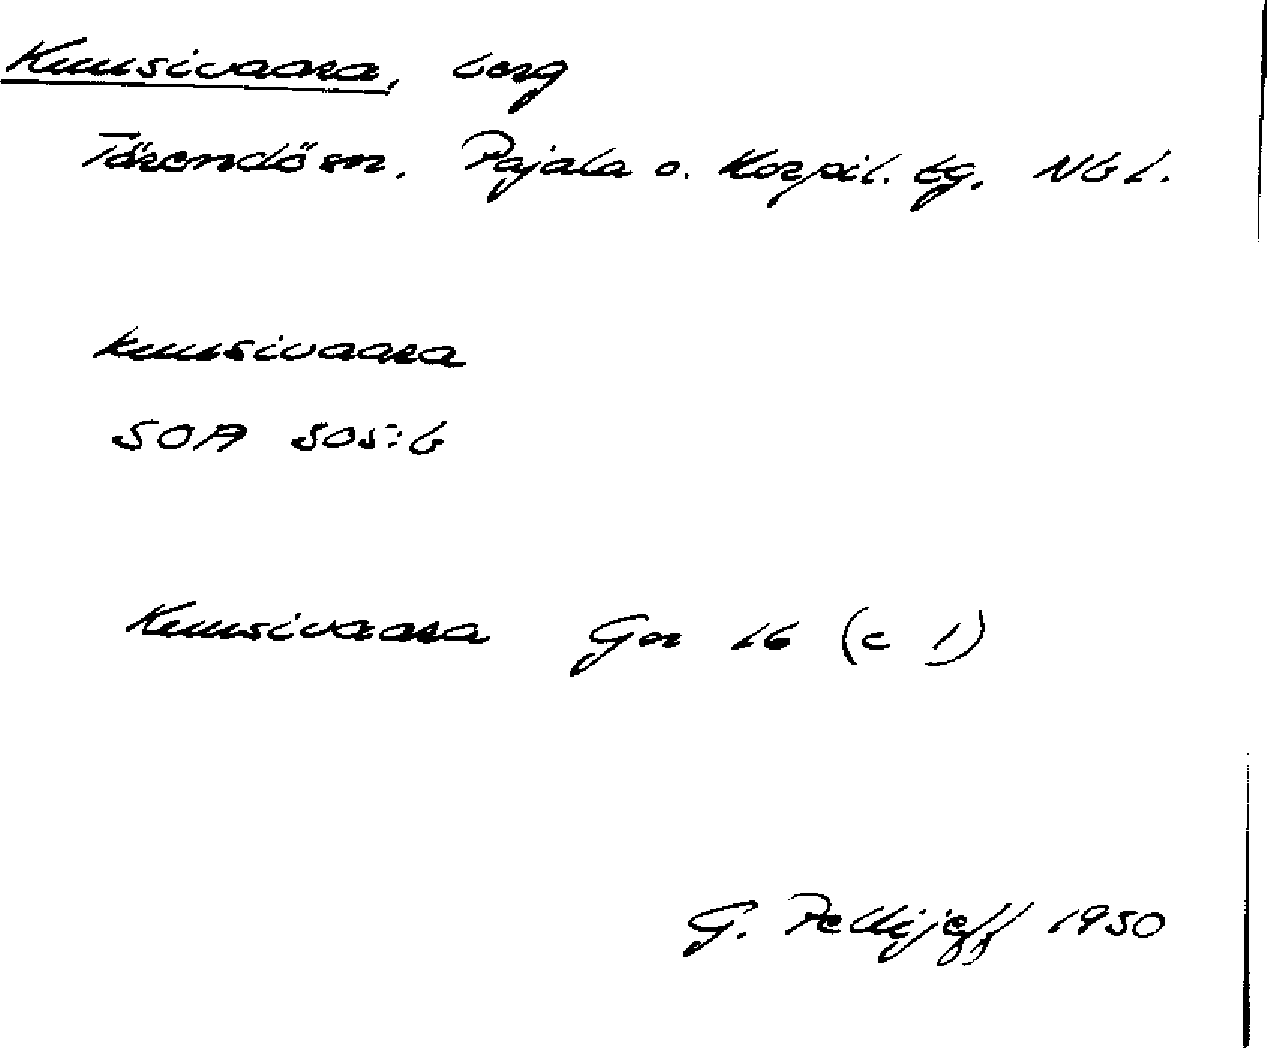 Kuusivaara, berg
Tärendö sn. Pajala o. Korpil. tg. Nb l.
Kuusivaara
SOA 505:6
Kuusivaara Ger 16 (c 1)
G. Pellijeff 1950